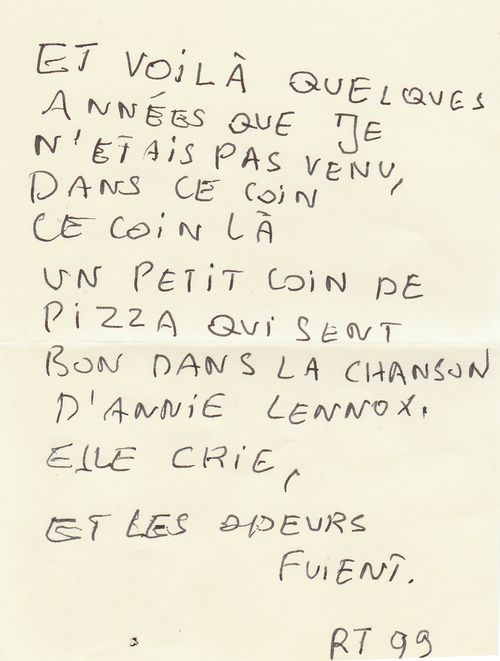 ET VOILÀ QUELQUES
ANNÉES QUE JE
N'ÉTAIS PAS VENU,
DANS CE COIN
CE COIN LÀ
UN PETIT COIN DE
PIZZA QUI SENT
BON DANS LA CHANSON
D'ANNIE LENNOX.
ELLE CRIE,
ET LES ODEURS
FUIENT.
RT 99